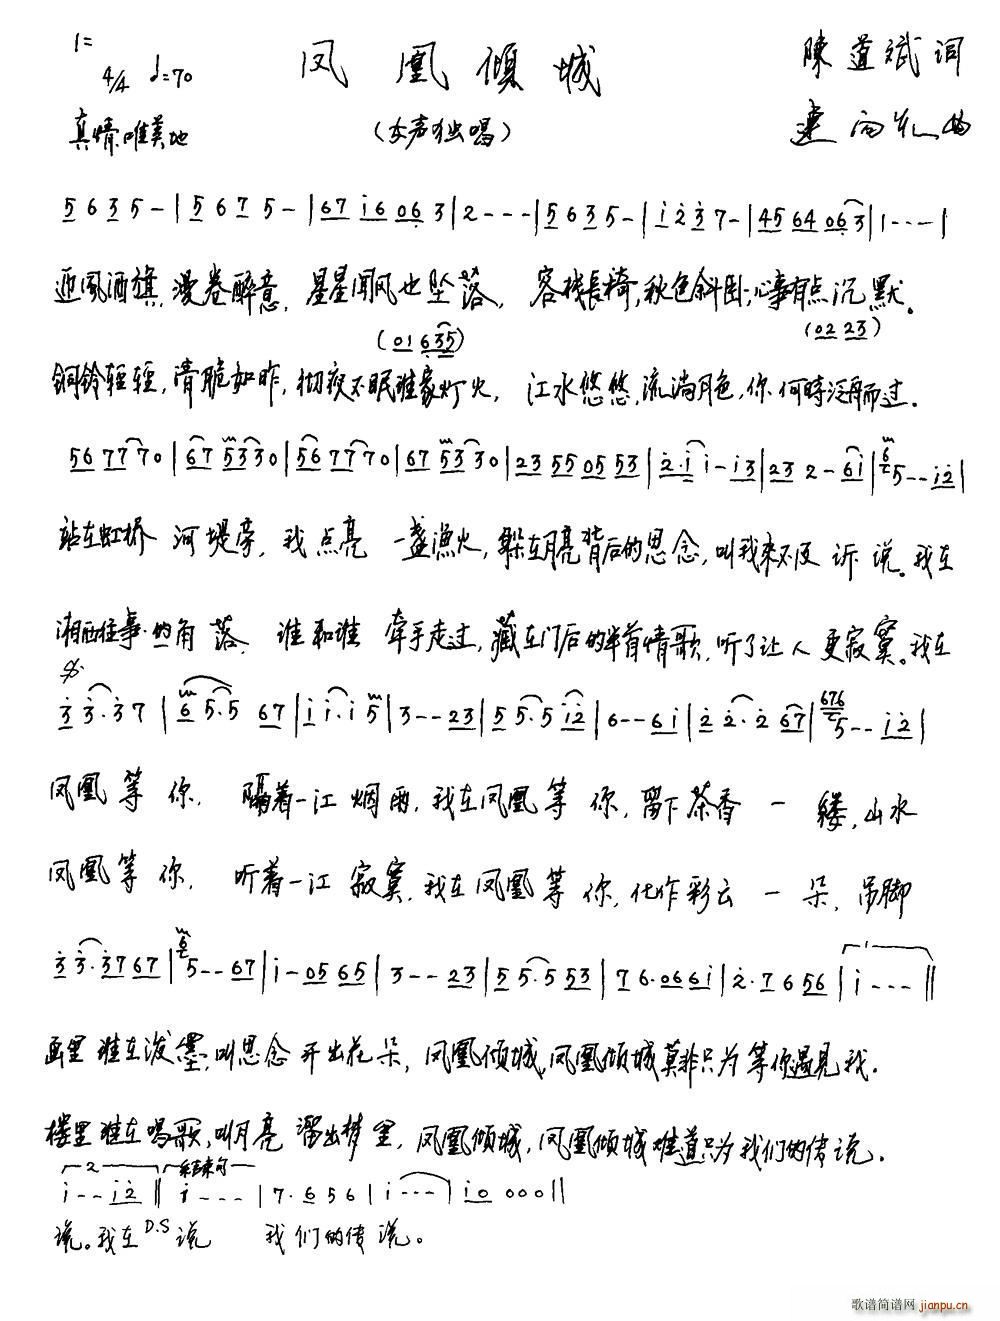 1=
4/4 ♩=70
凤凰倾城
陈道斌 词
真情、唯美地
(女声独唱)
曲
5 6 3 5 - | 5 6 7 5 - | 67 i6 06 3 | 2 - - - | 5 6 3 5 - | i 2 3 7 - | 45 64 06 3 | 1 - - - |
迎风酒旗,漫卷醉意,星星闻风也坠落,客栈長椅,秋色斜卧,心事有点沉默。
(01 635) (02 23)
铜铃轻轻,清脆如昨,彻夜不眠谁家灯火,江水悠悠,流淌月色,你何時泛舟而过.
56 77 70 | 67 53 30 | 56 77 70 | 67 53 30 | 23 55 05 53 | 2·i i - i3 | 23 2 - 6i | 6 5 - - i2 |
站在虹桥 河堤旁,我点亮 一盏渔火,躲在月亮背后的思念,叫我来不及诉说。我在
湘西往事的角落,谁和谁 牵手走过,藏在门后的半首情歌,听了让人更寂寞。我在
3 3·3 7 | 6 5·5 67 | i i·i 5 | 3 - - 23 | 5 5·5 i2 | 6 - - 6i | 2 2·2 67 | 676 5 - - i2 |
凤凰等你,隔着一江烟雨,我在凤凰等你,留下茶香一缕,山水
凤凰等你,听着一江寂寞,我在凤凰等你,化作彩云一朵,吊脚
3 3·37 67 | 6 5 - - 67 | i - 05 65 | 3 - - 23 | 5 5·5 53 | 7 6·06 6i | 2·7 6 56 | 1 i - - - ||
画里谁在泼墨,叫思念开出花朵,凤凰倾城,凤凰倾城莫非只为等你遇见我.
楼里谁在唱歌,叫月亮溜出梦里,凤凰倾城,凤凰倾城难道只为我们的传说.
2 结束句
i - - i2 || i - - - | 7·6 5 6 | i - - - | i0 000 ||
说。我在 D.S 说 我们的传说。
歌谱简谱网 jianpu.cn